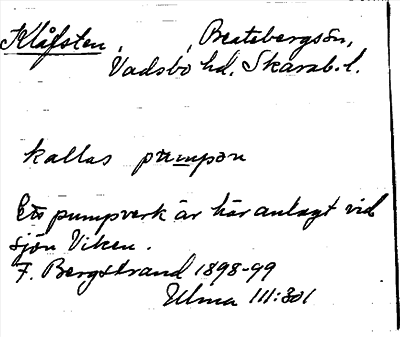 Klåfsten, , Beatebergsön,
Vadsbo hd. Skarab. l.
kallas pumpön
Ett pumpverk är här anlagt vid
sjön Viken.
F. Bergstrand 1898-99
Ulma 111:301